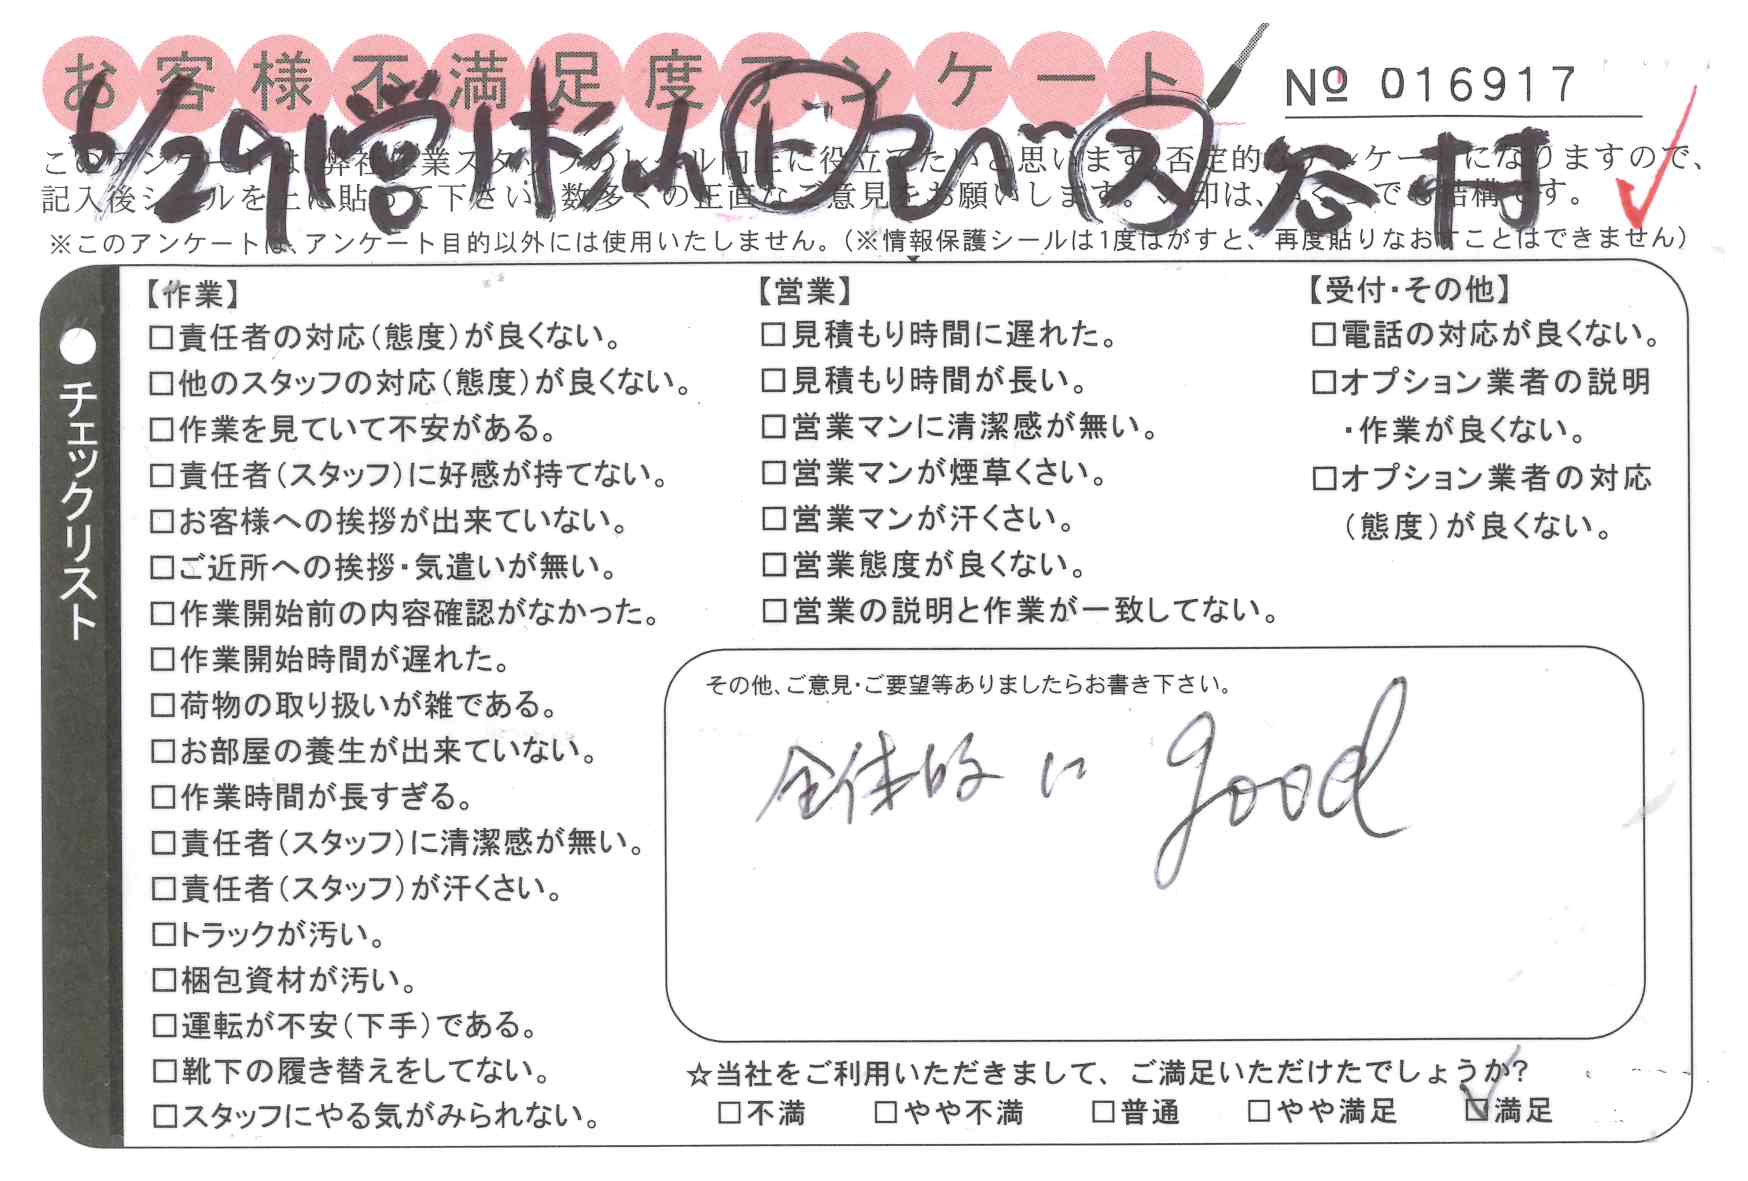 お客様不満足度アンケート
№ 016917
6/29 営 杉山 ト 谷村
このアンケートは、弊社作業スタッフのレール向上に役立てたいと思います。否定的なアンケートになりますので、
記入後シールを上に貼って下さい。数多くの正直なご意見をお願いします。✓印は、いくつでも結構です。
※このアンケートは、アンケート目的以外には使用いたしません。(※情報保護シールは1度はがすと、再度貼りなおすことはできません)
●チェックリスト
【作業】
□責任者の対応(態度)が良くない。
□他のスタッフの対応(態度)が良くない。
□作業を見ていて不安がある。
□責任者(スタッフ)に好感が持てない。
□お客様への挨拶が出来ていない。
□ご近所への挨拶・気遣いが無い。
□作業開始前の内容確認がなかった。
□作業開始時間が遅れた。
□荷物の取り扱いが雑である。
□お部屋の養生が出来ていない。
□作業時間が長すぎる。
□責任者(スタッフ)に清潔感が無い。
□責任者(スタッフ)が汗くさい。
□トラックが汚い。
□梱包資材が汚い。
□運転が不安(下手)である。
□靴下の履き替えをしてない。
□スタッフにやる気がみられない。
【営業】
□見積もり時間に遅れた。
□見積もり時間が長い。
□営業マンに清潔感が無い。
□営業マンが煙草くさい。
□営業マンが汗くさい。
□営業態度が良くない。
□営業の説明と作業が一致してない。
【受付・その他】
□電話の対応が良くない。
□オプション業者の説明
・作業が良くない。
□オプション業者の対応
(態度)が良くない。
その他、ご意見・ご要望等ありましたらお書き下さい。
全体的に good
☆当社をご利用いただきまして、ご満足いただけたでしょうか?
□不満 □やや不満 □普通 □やや満足 ☑満足